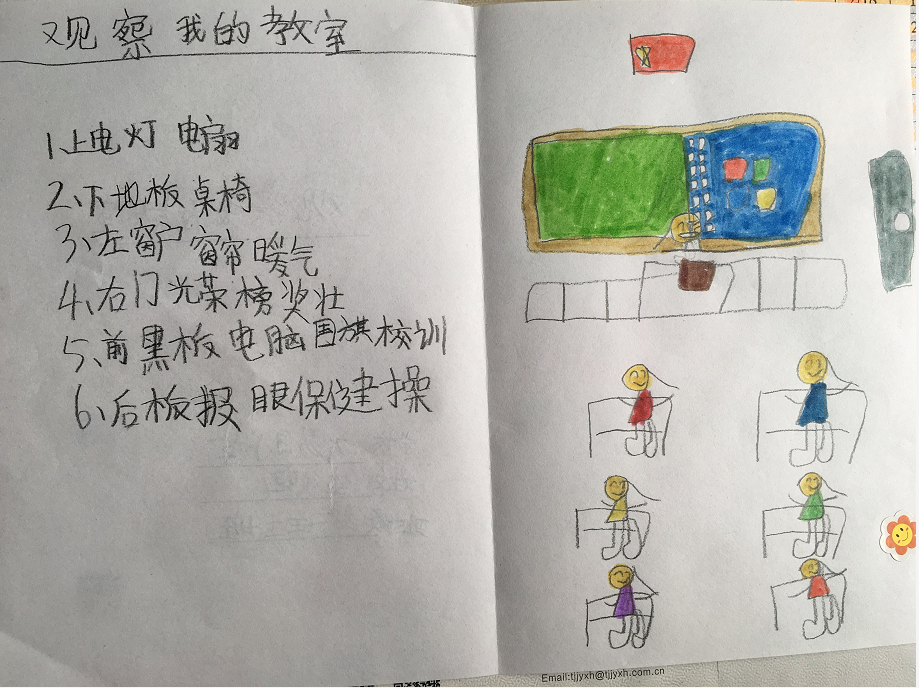 观察我的教室
1、上电灯 电扇
2、下地板桌椅
3、左窗户窗帘暖气
4、右门光荣榜奖壮
5、前黑板电脑国旗校训
6、后板报眼保健操
Email:tjjyxh@tjjyxh.com.cn